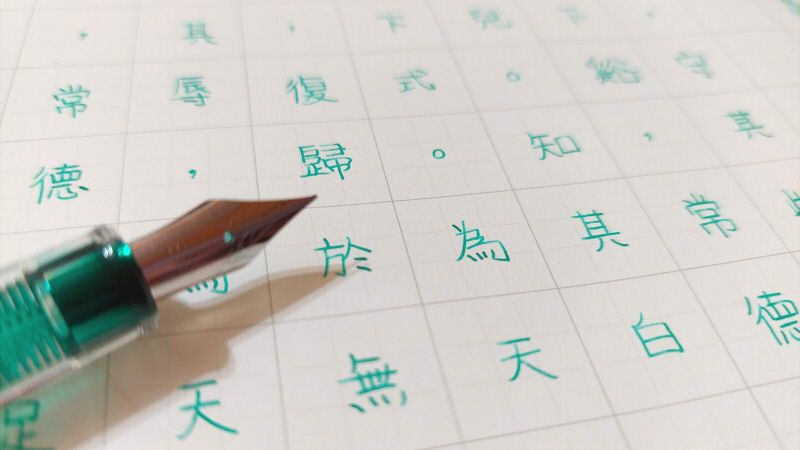 ，守其
下谿，常德
兒。知其白
下式。為天
，復歸於無
其辱，為天
，常德足